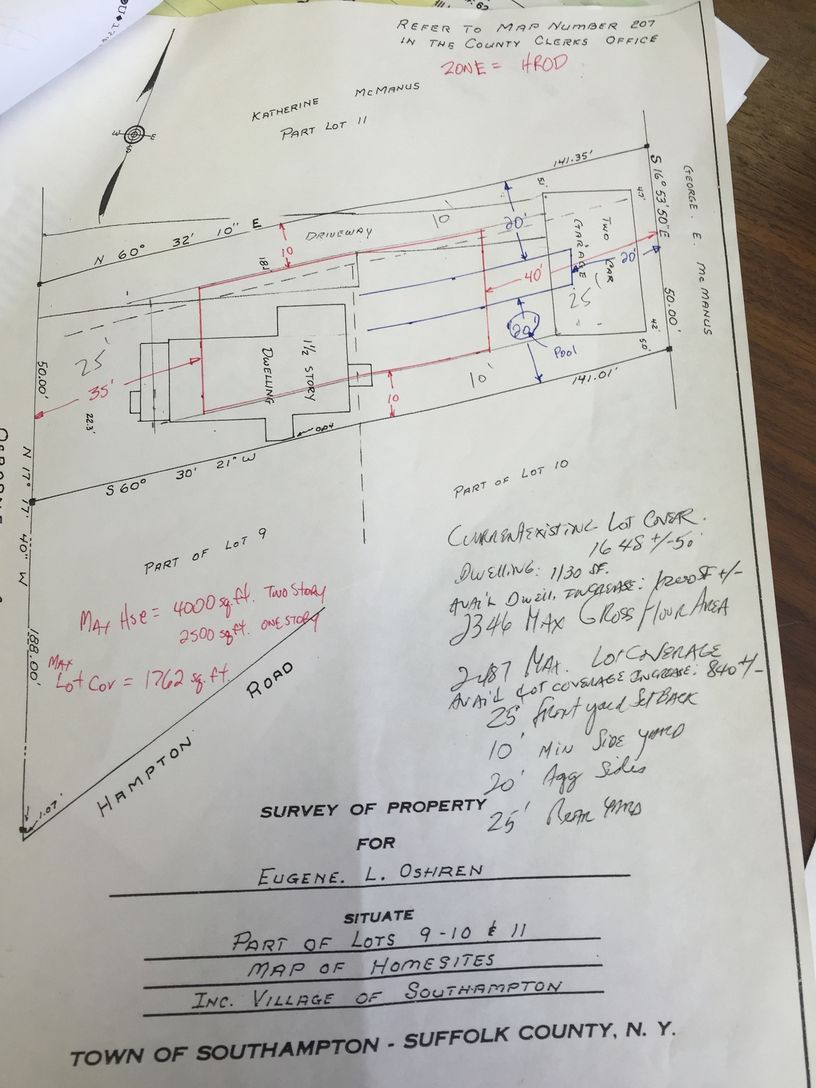 REFER TO MAP NUMBER 207
IN THE COUNTY CLERKS OFFICE
ZONE = HROD
KATHERINE McMANUS
PART LOT 11
W E
S
141.35'
S 16° 53' 50" E
GEORGE E. McMANUS
N 60° 32' 10" E
DRIVEWAY
10'
20'
10
18'
TWO CAR
GARAGE
40'
20'
25'
25'
35'
50.00'
50.00'
22.3'
1½ STORY
DWELLING
20'
POOL
10'
10
141.01'
S 60° 30' 21" W
N 17° 17' 40" W
188.00'
PART OF LOT 10
PART OF LOT 9
CURRENT EXISTING LOT COVER.
1648 +/- 50
DWELLING: 1130 SF.
AVAIL DWELL. INCREASE: 1200 SF +/-
2346 MAX GROSS FLOOR AREA
2487 MAX. LOT COVERAGE
AVAIL LOT COVERAGE INCREASE: 840 +/-
25' Front yard SetBack
10' MIN SIDE YARD
20' Agg Sides
25' REAR YARD
MAX Hse = 4000 sq.ft. TWO STORY
2500 sq ft. ONE STORY
MAX
Lot Cov = 1762 sq.ft.
HAMPTON ROAD
1.07'
SURVEY OF PROPERTY
FOR
EUGENE. L. OSHREN
SITUATE
PART OF LOTS 9-10 & 11
MAP OF HOMESITES
INC. VILLAGE OF SOUTHAMPTON
TOWN OF SOUTHAMPTON - SUFFOLK COUNTY, N. Y.